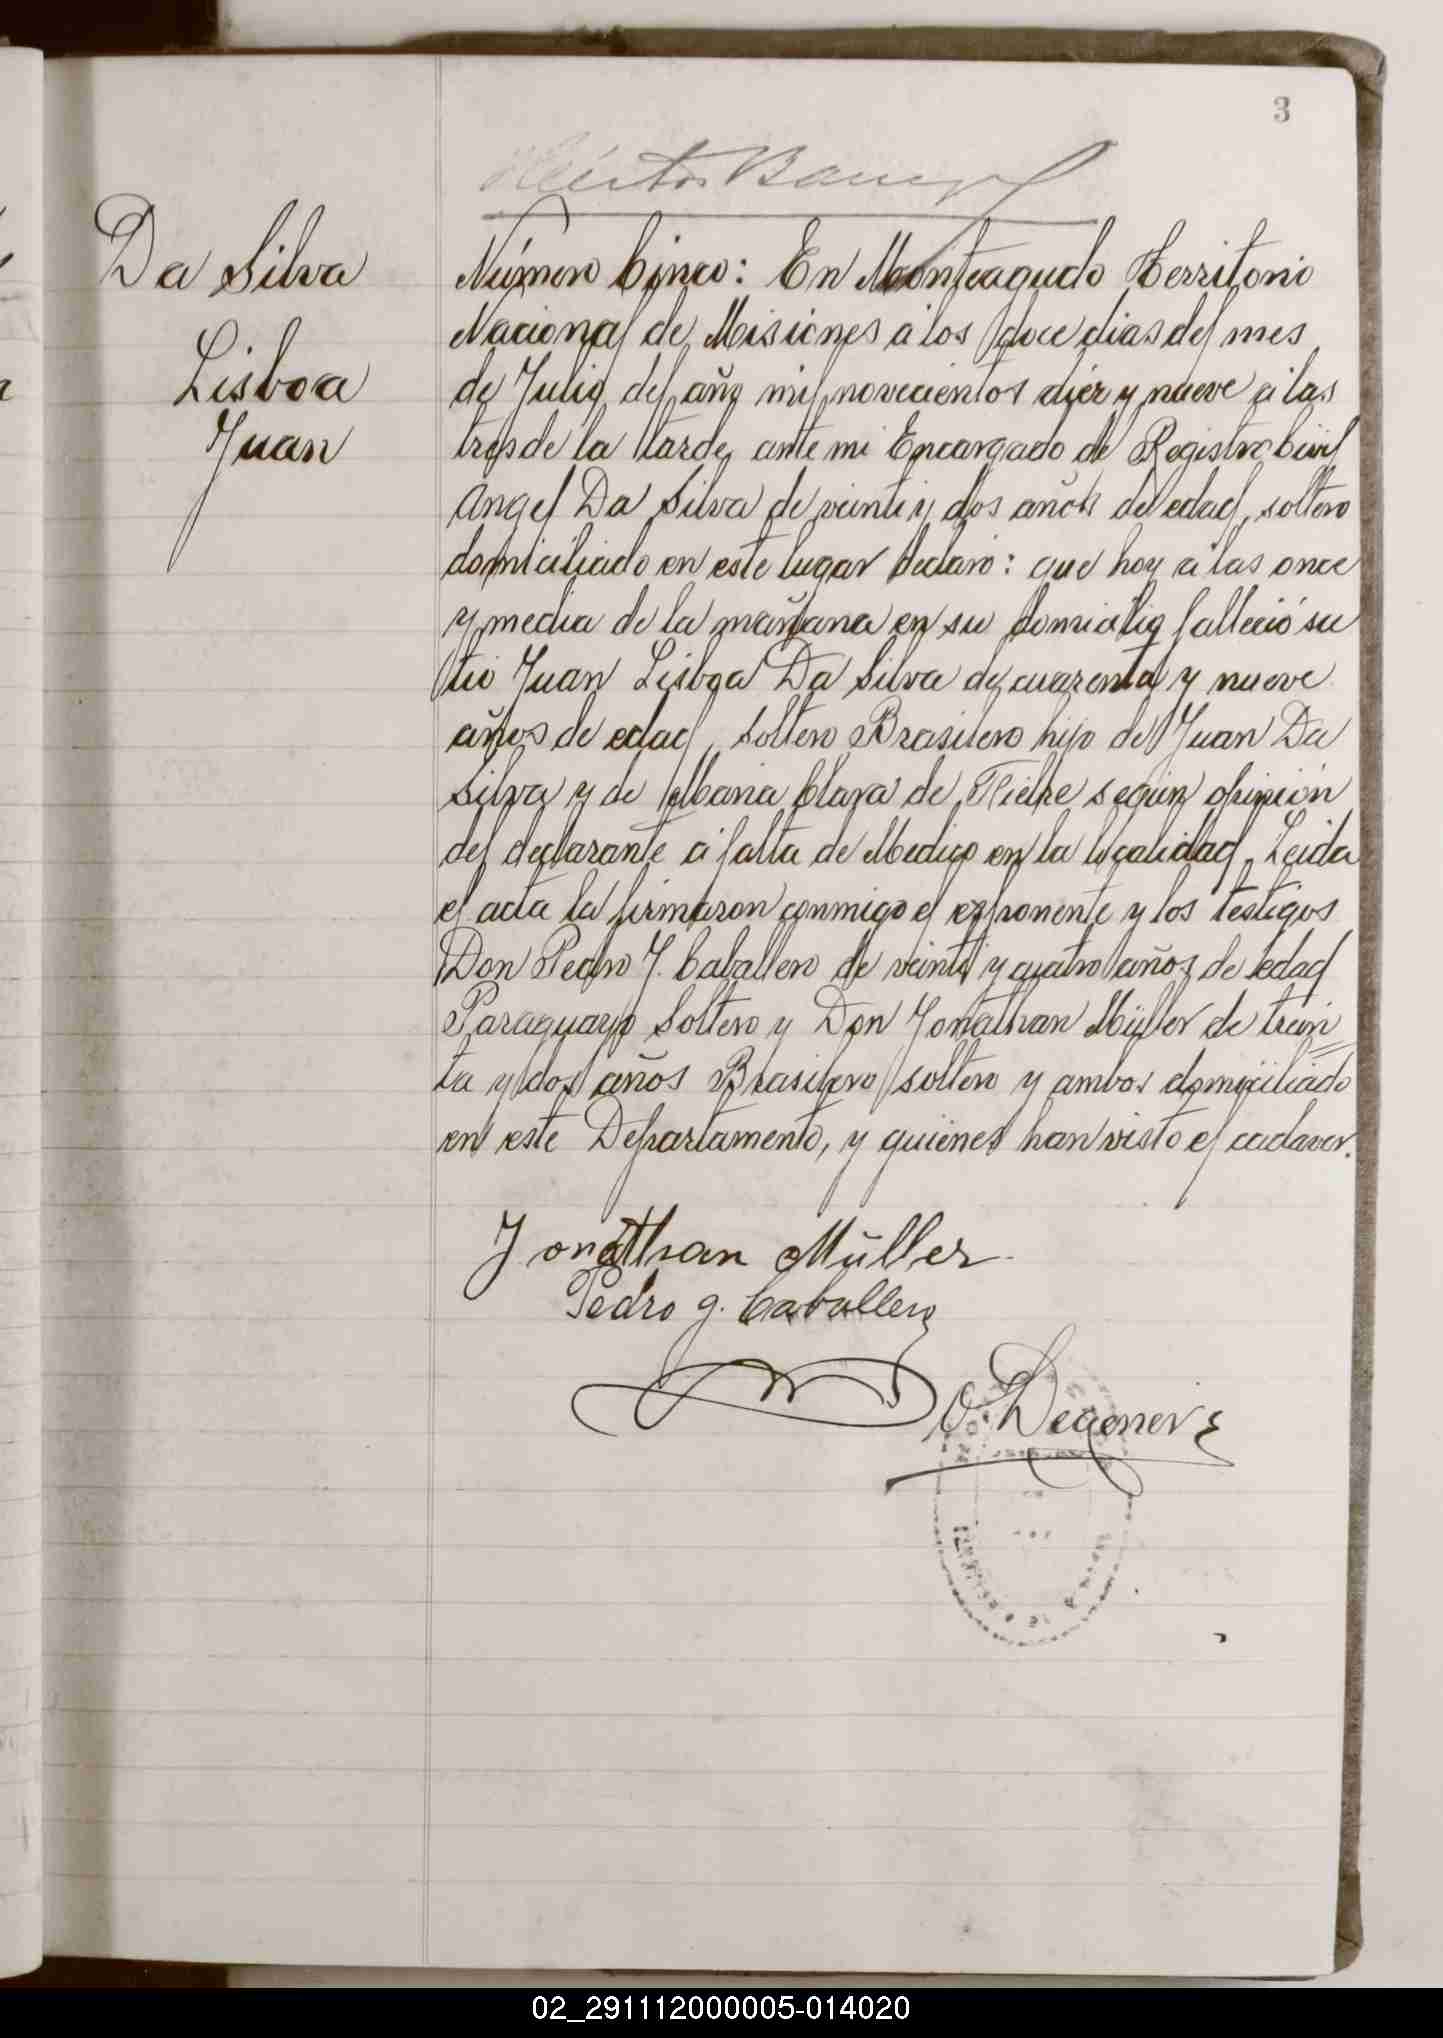 3
Da Silva
Lisboa
Juan
Número Cinco: En Monteagudo Territorio
Nacional de Misiones á los doce dias del mes
de Julio del año mil novecientos diez y nueve á las
tres de la tarde, ante mi Encargado de Registro Civil
Angel Da Silva de veinti y dos años de edad, soltero
domiciliado en este lugar declaró: que hoy á las once
y media de la mañana en su domicilio falleció su
tio Juan Lisboa Da Silva de cuarenta y nueve
años de edad, soltero Brasilero hijo de Juan Da
Silva y de Maria Clara de Fiebre según opinión
del declarante á falta de Medico en la localidad, Leida
el acta la firmaron conmigo el exponente y los testigos
Don Pedro J. Caballero de veinti y cuatro años de edad
Paraguayo Soltero y Don Jonathan Müller de trein
ta y dos años Brasilero soltero y ambos domiciliado
en este Departamento, y quienes han visto el cadaver.
Jonathan Müller
Pedro g. Caballero
02_291112000005-014020